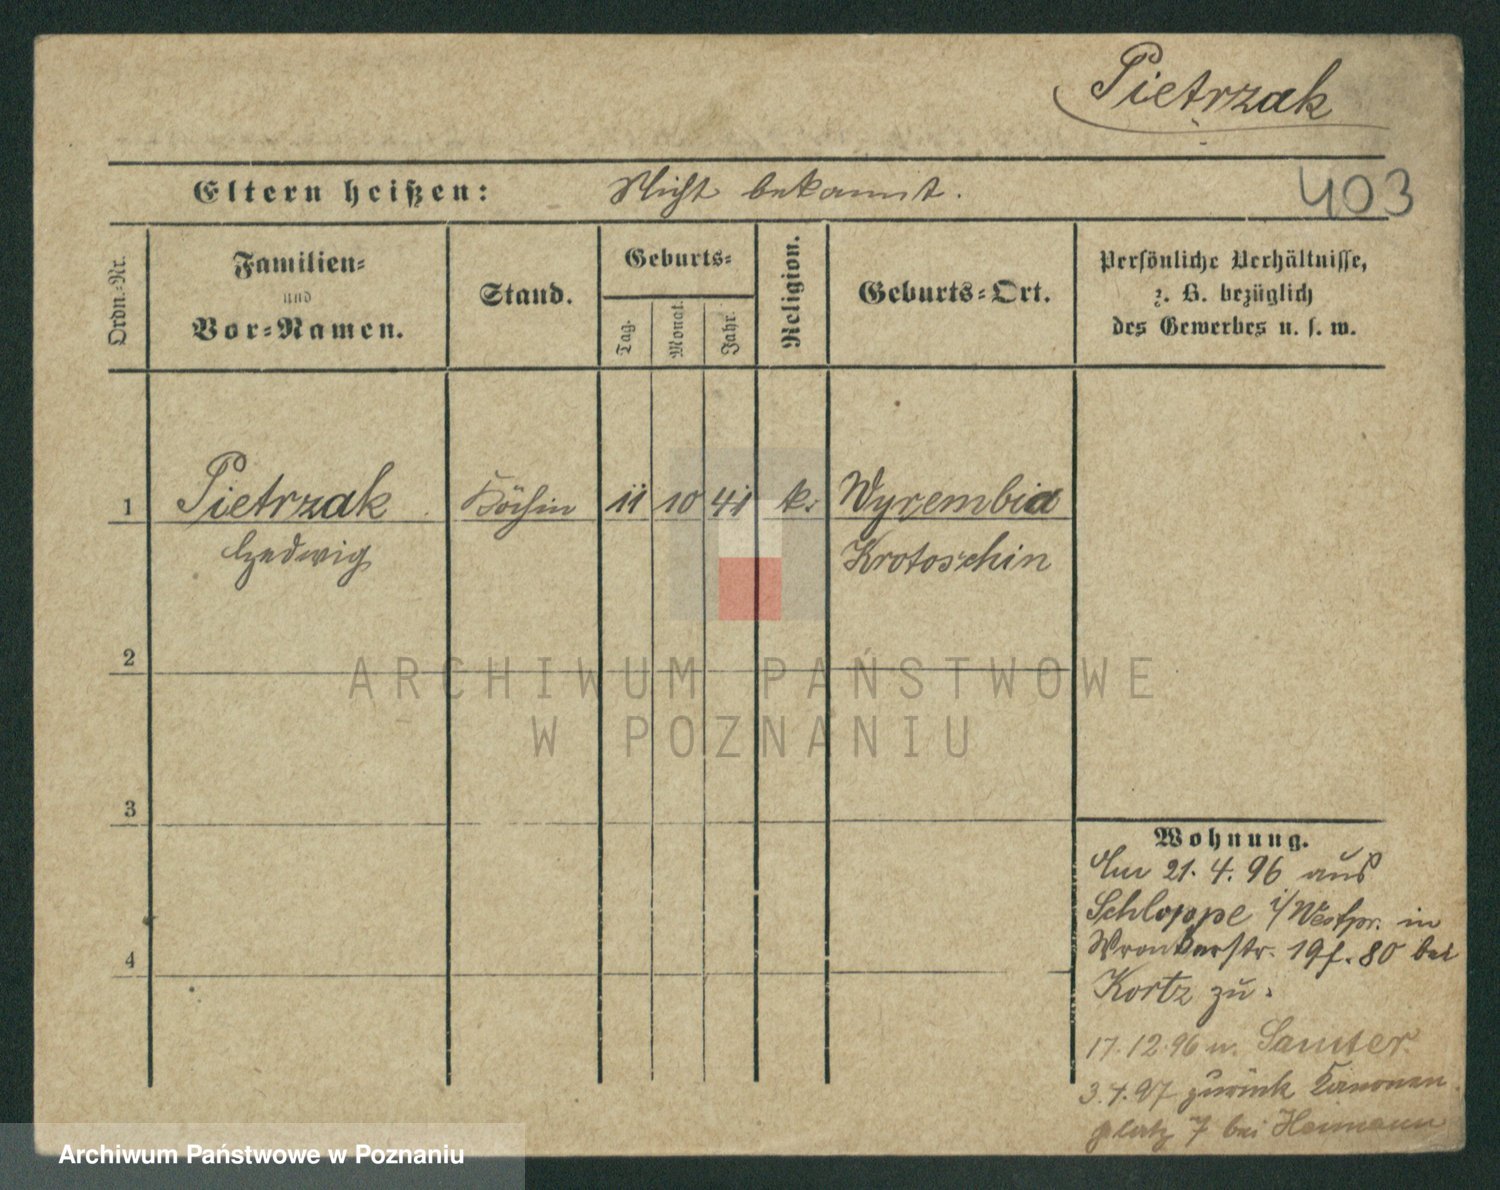 Pietrzak
403
Eltern heißen: Nicht bekannt.
Ordn.-Nr.
Familien-
und
Vor-Namen.
Stand.
Geburts-
Tag.
Monat.
Jahr.
Religion.
Geburts-Ort.
Persönliche Verhältnisse,
z. B. bezüglich
des Gewerbes u. s. w.
1 Pietrzak Köchin 11 10 41 k. Wyrembia
Hedwig Krotoschin
2
3
4
ARCHIWUM PAŃSTWOWE
W POZNANIU
Wohnung.
Am 21. 4. 96 aus
Schloppe i/Westpr. in
Wronkerstr. 19 f. 80 bei
Kortz zu.
17. 12. 96 n. Samter
3. 4. 97 zurück Kanonen
platz 7 bei Heimann
Archiwum Państwowe w Poznaniu